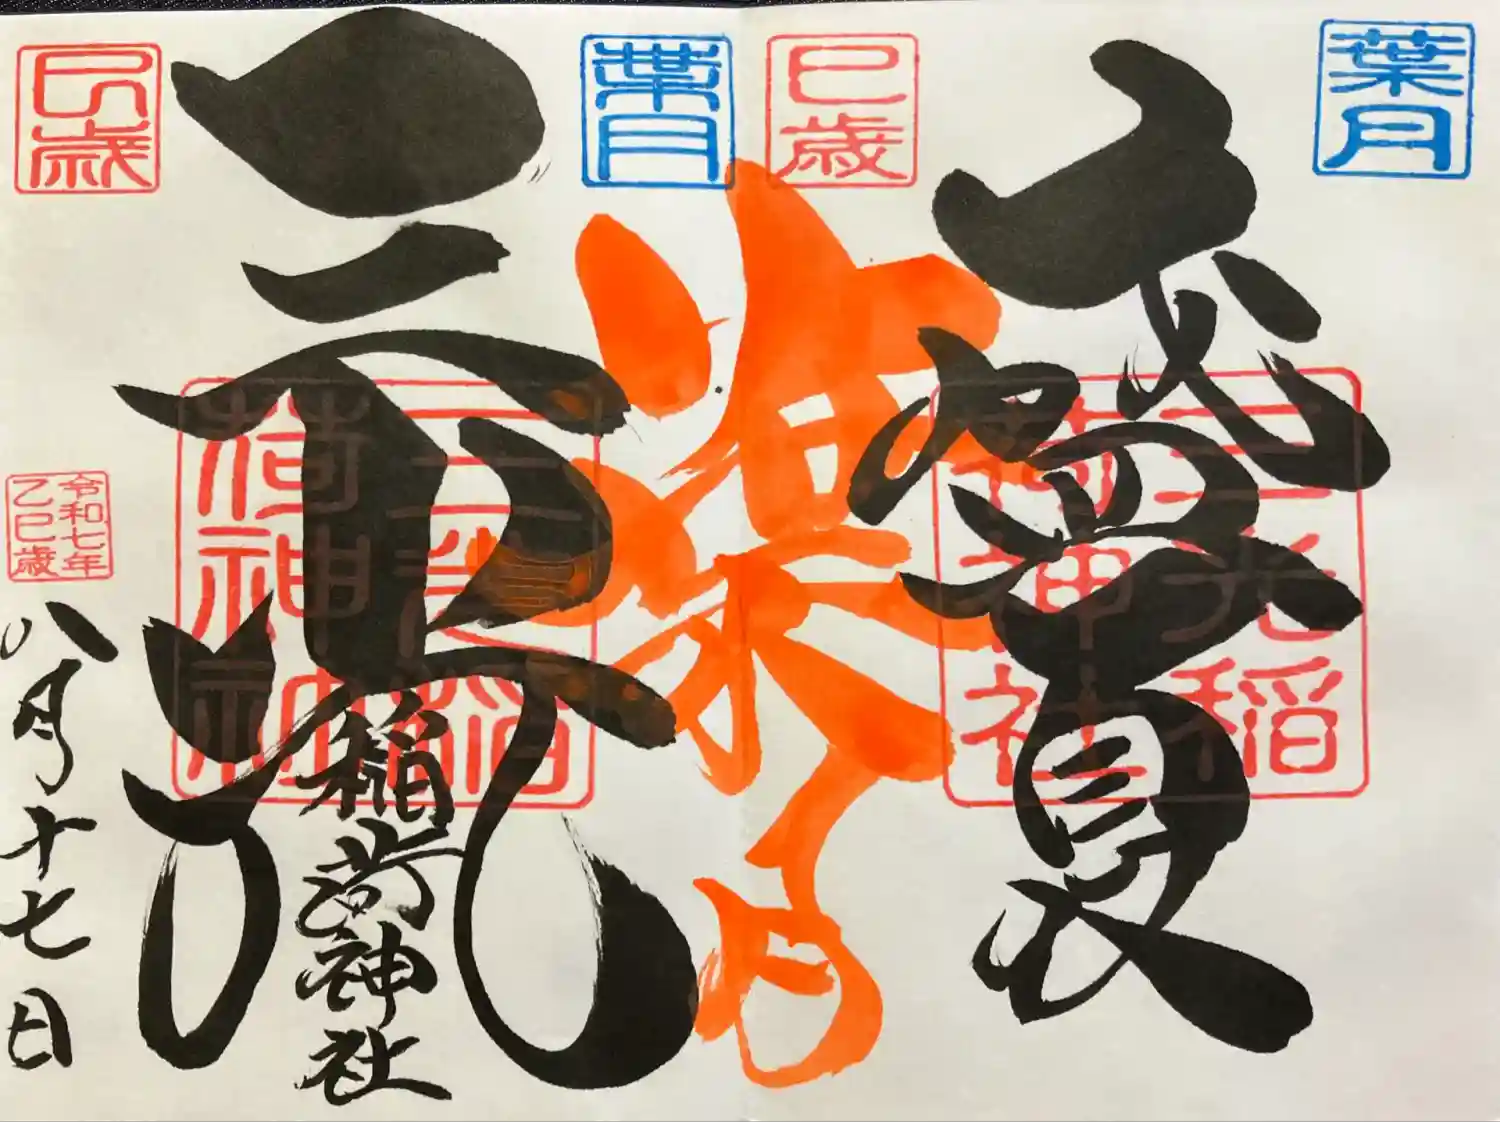 葉月
巳歳
三光稲
荷神社
葉月
巳歳
三光
稲荷神社
三光稲
荷神社
令和七年
乙巳歳
八月十七日